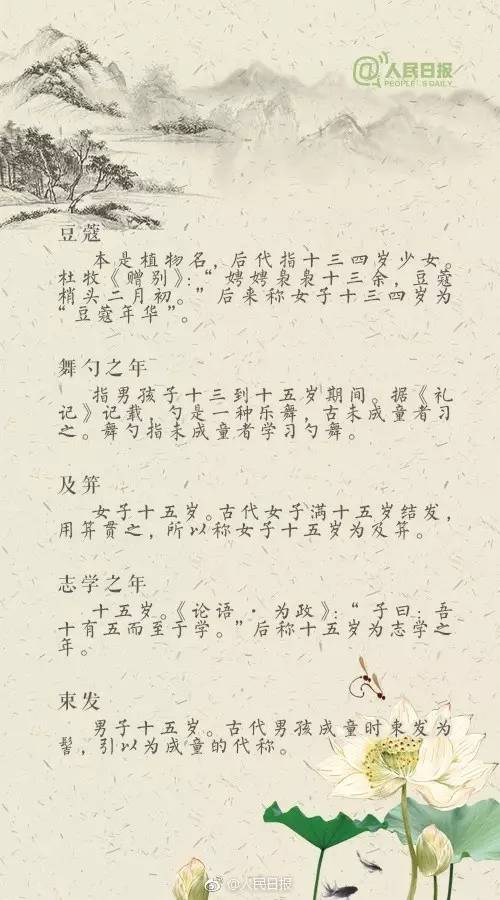 @人民日报
PEOPLE'S DAILY
豆蔻
本是植物名，后代指十三四岁少女。
杜牧《赠别》：“娉娉袅袅十三余，豆蔻
梢头二月初。”后来称女子十三四岁为
“豆蔻年华”。
舞勺之年
指男孩子十三到十五岁期间。据《礼
记》记载，勺是一种乐舞，古未成童者习
之。舞勺指未成童者学习勺舞。
及笄
女子十五岁。古代女子满十五岁结发，
用笄贯之，所以称女子十五岁为及笄。
志学之年
十五岁。《论语·为政》：“子曰：吾
十有五而至于学。”后称十五岁为志学之
年。
束发
男子十五岁。古代男孩成童时束发为
髻，引以为成童的代称。
@人民日报